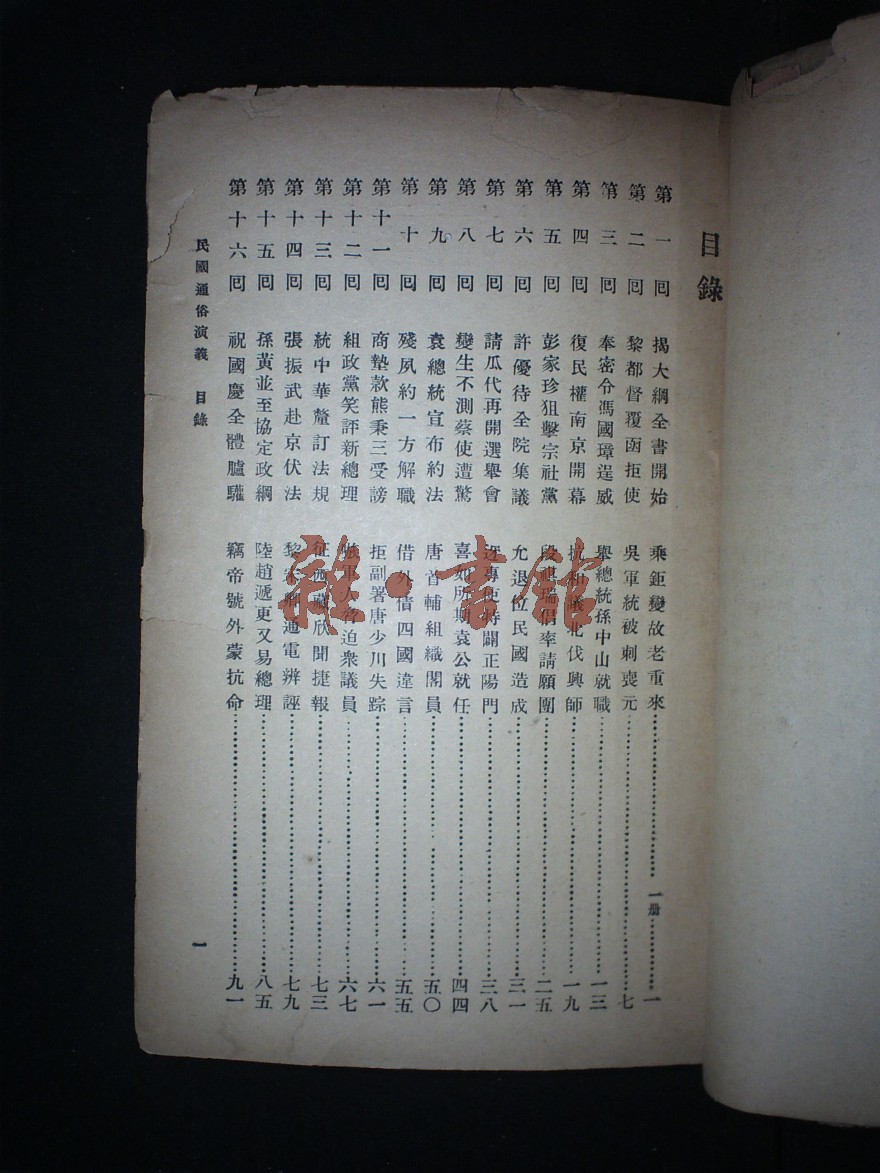 目錄
第一回 揭大綱全書開始 乘鉅變故老重來 一册 一
第二回 黎都督覆函拒使 吳軍統被刺喪元 七
第三回 奉密令馮國璋逞威 舉總統孫中山就職 一三
第四回 復民權南京開幕 抗和議北伐興師 一九
第五回 彭家珍狙擊宗社黨 段祺瑞倡率請願團 二五
第六回 許優待全院集議 允退位民國造成 三一
第七回 請瓜代再開選舉會 迓專使特闢正陽門 三八
第八回 變生不測蔡使遭驚 喜如所期袁公就任 四四
第九回 袁總統宣布約法 唐首輔組織閣員 五〇
第十回 殘夙約一方解職 借外債四國違言 五五
第十一回 商墊款熊秉三受謗 拒副署唐少川失踪 六一
第十二回 組政黨笑評新總理 迫衆議員 六七
第十三回 統中華釐訂法規 征西藏欣聞捷報 七三
第十四回 張振武赴京伏法 黎宋卿通電辨誣 七九
第十五回 孫黃並至協定政綱 陸趙遞更又易總理 八五
第十六回 祝國慶全體臚驩 竊帝號外蒙抗命 九一
民國通俗演義 目錄 一
雜·書館